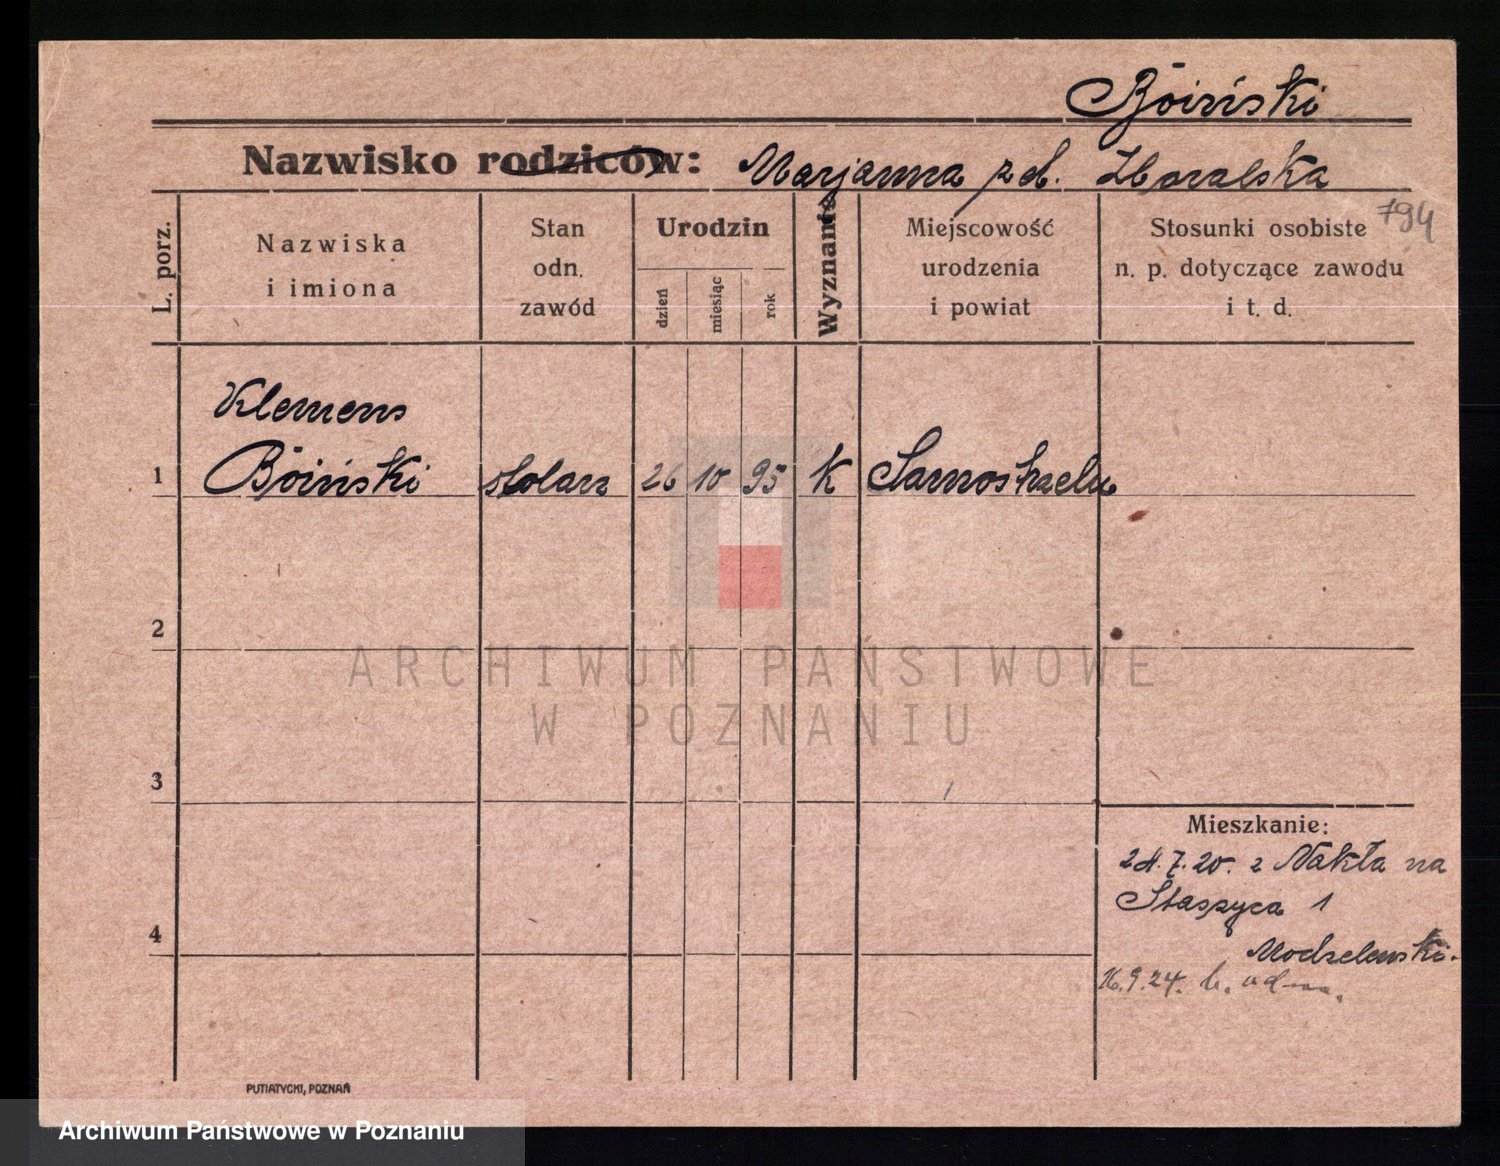 Bóiński
Nazwisko rodziców: Marjanna zd. Zboralska
794
L. porz.
Nazwiska
i imiona
Stan
odn.
zawód
Urodzin
dzień
miesiąc
rok
Wyznanie
Miejscowość
urodzenia
i powiat
Stosunki osobiste
n. p. dotyczące zawodu
i t. d.
Klemens
1 Bóiński stolarz 26 10 95 K Samostrzelu
2
ARCHIWUM PAŃSTWOWE
W POZNANIU
3
Mieszkanie:
24.7.20. z Nakła na
Staszyca 1
4
Modzelewski.
16.9.24.
PUTIATYCKI, POZNAŃ
Archiwum Państwowe w Poznaniu